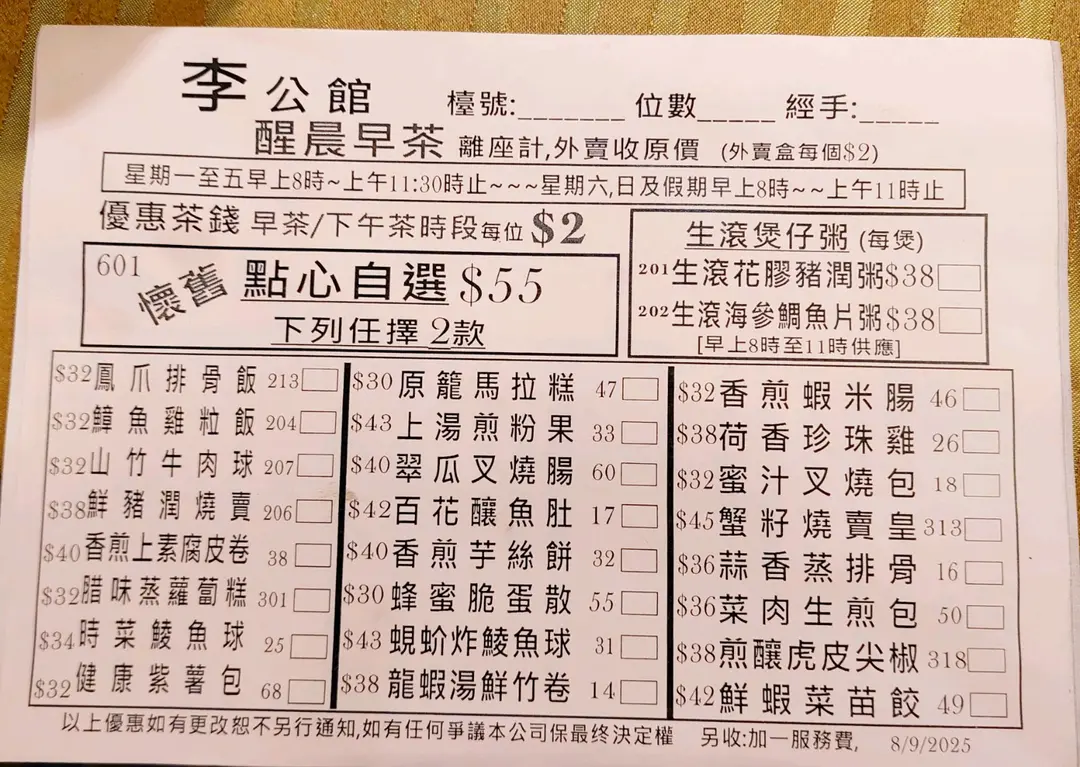 李公館 檯號:_______ 位數_____ 經手:_____
醒晨早茶 離座計,外賣收原價 (外賣盒每個$2)
星期一至五早上8時~上午11:30時止~~~星期六,日及假期早上8時~~上午11時止
優惠茶錢 早茶/下午茶時段每位 $2
601
懷舊 點心自選 $55
下列任擇 2款
生滾煲仔粥 (每煲)
201生滾花膠豬潤粥$38
202生滾海參鯛魚片粥$38
[早上8時至11時供應]
$32鳳爪排骨飯 213
$32鱆魚雞粒飯 204
$32山竹牛肉球 207
$38鮮豬潤燒賣 206
$40香煎上素腐皮卷 38
$32腊味蒸蘿蔔糕 301
$34時菜鯪魚球 25
$32健康紫薯包 68
$30原籠馬拉糕 47
$43上湯煎粉果 33
$40翠瓜叉燒腸 60
$42百花釀魚肚 17
$40香煎芋絲餅 32
$30蜂蜜脆蛋散 55
$43蜆蚧炸鯪魚球 31
$38龍蝦湯鮮竹卷 14
$32香煎蝦米腸 46
$38荷香珍珠雞 26
$32蜜汁叉燒包 18
$45蟹籽燒賣皇 313
$36蒜香蒸排骨 16
$36菜肉生煎包 50
$38煎釀虎皮尖椒 318
$42鮮蝦菜苗餃 49
以上優惠如有更改恕不另行通知,如有任何爭議本公司保最终決定權 另收:加一服務費, 8/9/2025